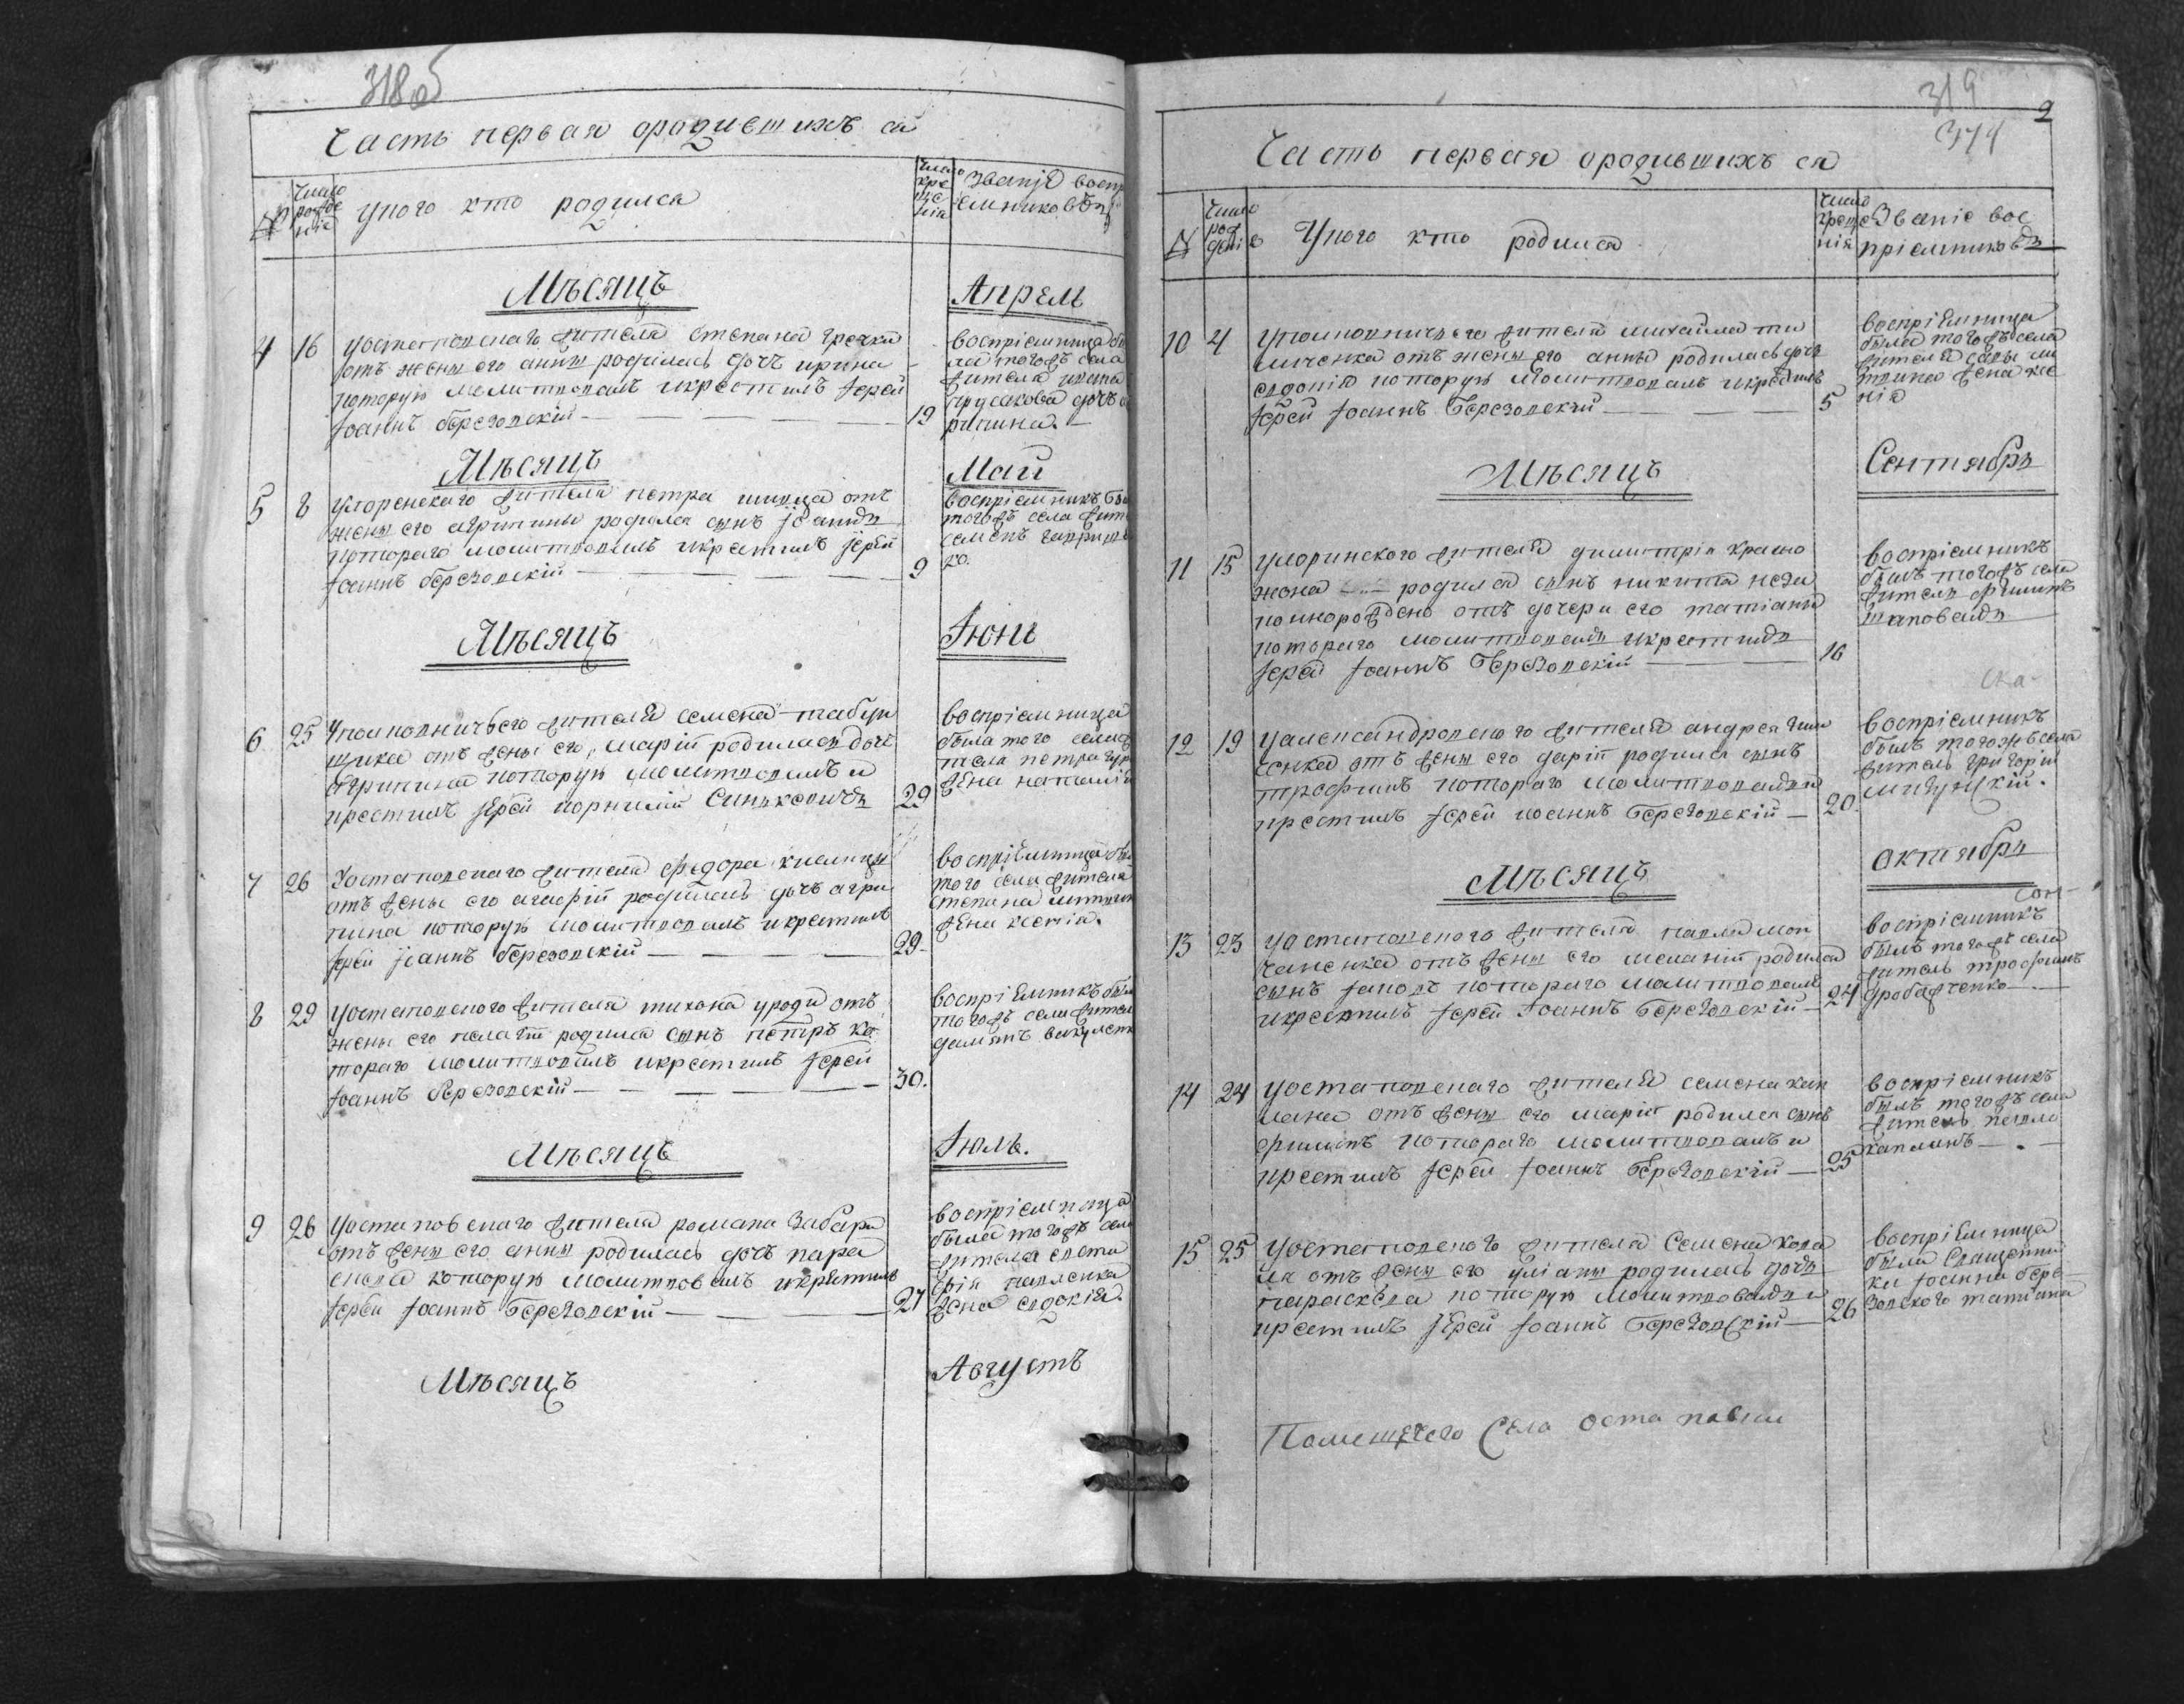 318об
Часть первая ородившихъ ся
№ Число рождения
Укого кто родился
Число крещения
Званiе воспр
емниковъ
Мѣсяцъ Апрель
4 16 Уостаповскаго жителя степана гречки
отъ жены его анны родилась дочь ирина
которую молитвовалъ икрестилъ Iерей
Iоаннъ березовскiй 19
воспрiемница бы
ла тогожъ села
жителя ивана
русакова дочь
Мѣсяцъ Май
5 8 жителя петра швеца отъ
жены его агрипины родился сынъ Iоаннъ
котораго молитвовалъ икрестилъ Iерей
Iоаннъ березовскiй 9
воспрiемникъ бы
тогожъ села жит
семенъ
ко.
Мѣсяцъ Iюнь
6 25 жителя семена табун
щика отъ жены его марiи родилась дочь
агрипина которую молитвовалъ и
крестилъ Iерей корнилiй Синькевичъ 29
воспрiемница
была того села ж
теля петра
жена наталiя
7 26 Уостаповскаго жителя федора кислицы
отъ жены его агафiи родилась дочь агри
пина которую молитвовалъ икрестилъ
Iерей Iоаннъ березовскiй 29.
воспрiемница бы
того села жителя
степана
жена ксенiя.
8 29 Уостаповского жителя тихона уроди отъ
жены его пелагiи родился сынъ петръ ко
тораго молитвовалъ икрестилъ Iерей
Iоаннъ березовскiй 30.
воспрiемникъ был
тогожъ села жител
демянъ вакулен
Мѣсяцъ Iюль.
9 26 Уостаповскаго жителя романа Забары
отъ жены его анны родилась дочь пара
скева которую молитвовалъ икрестилъ
Iерей Iоаннъ Березовскiй 27
воспрiемница
была тогожъ села
жителя
павленка
жена евдокiя.
Мѣсяцъ Августъ
319
374
2
Часть первая ородившихъ ся
№ Число рожденiе
Укого кто родился
Число крещенiя
Званiе вос
прiемниковъ
10 4 жителя михайла ти
мченка отъ жены его анны родилась дочь
евдокiя которую молитвовалъ икрестилъ
Iерей Iоаннъ Березовскiй 5
воспрiемница
была тогожъ села
жителя савы ли
твина жена ксе
нiя
Мѣсяцъ Сентябрь
11 15 жителя димитрiя крамо
жона родился сынъ никита неза
коннорожденъ отъ дочери его татiаны
котораго молитвовалъ икрестилъ
Iерей Iоаннъ Березовскiй 16
воспрiемникъ
былъ тогожъ села
житель филипъ
Шаповалъ
12 19 Уалександровского жителя андрея
сенка отъ жены его дарiи родился сынъ
трофимъ котораго молитвовалъ и
крестилъ Iерей иоаннъ Березовскiй 20.
воспрiемникъ
былъ тогожъ села
житель григорiй
Мѣсяцъ октябрь
13 23 Уостаповского жителя павла мои
сеенка отъ жены его меланiи родился
сынъ Iаковъ котораго молитвовалъ
икрестилъ Iерей Iоаннъ Березовскiй 24
воспрiемникъ
былъ тогожъ села
житель трофимъ
дробажченко
14 24 Уостаповскаго жителя семена кап
лана отъ жены его марiи родился сынъ
филипъ котораго молитвовалъ и
крестилъ Iерей Iоаннъ Березовскiй 25
воспрiемникъ
былъ тогожъ села
житель павло
капланъ
15 25 Уостаповского жителя Семена кова
ля отъ жены его улiаны родилась дочь
параскева которую молитвовалъ и
крестилъ Iерей Iоаннъ Березовскiй 26
воспрiемница
была Священни
ка Iоанна бере
зовского татiана
Помещечего Села остаповки